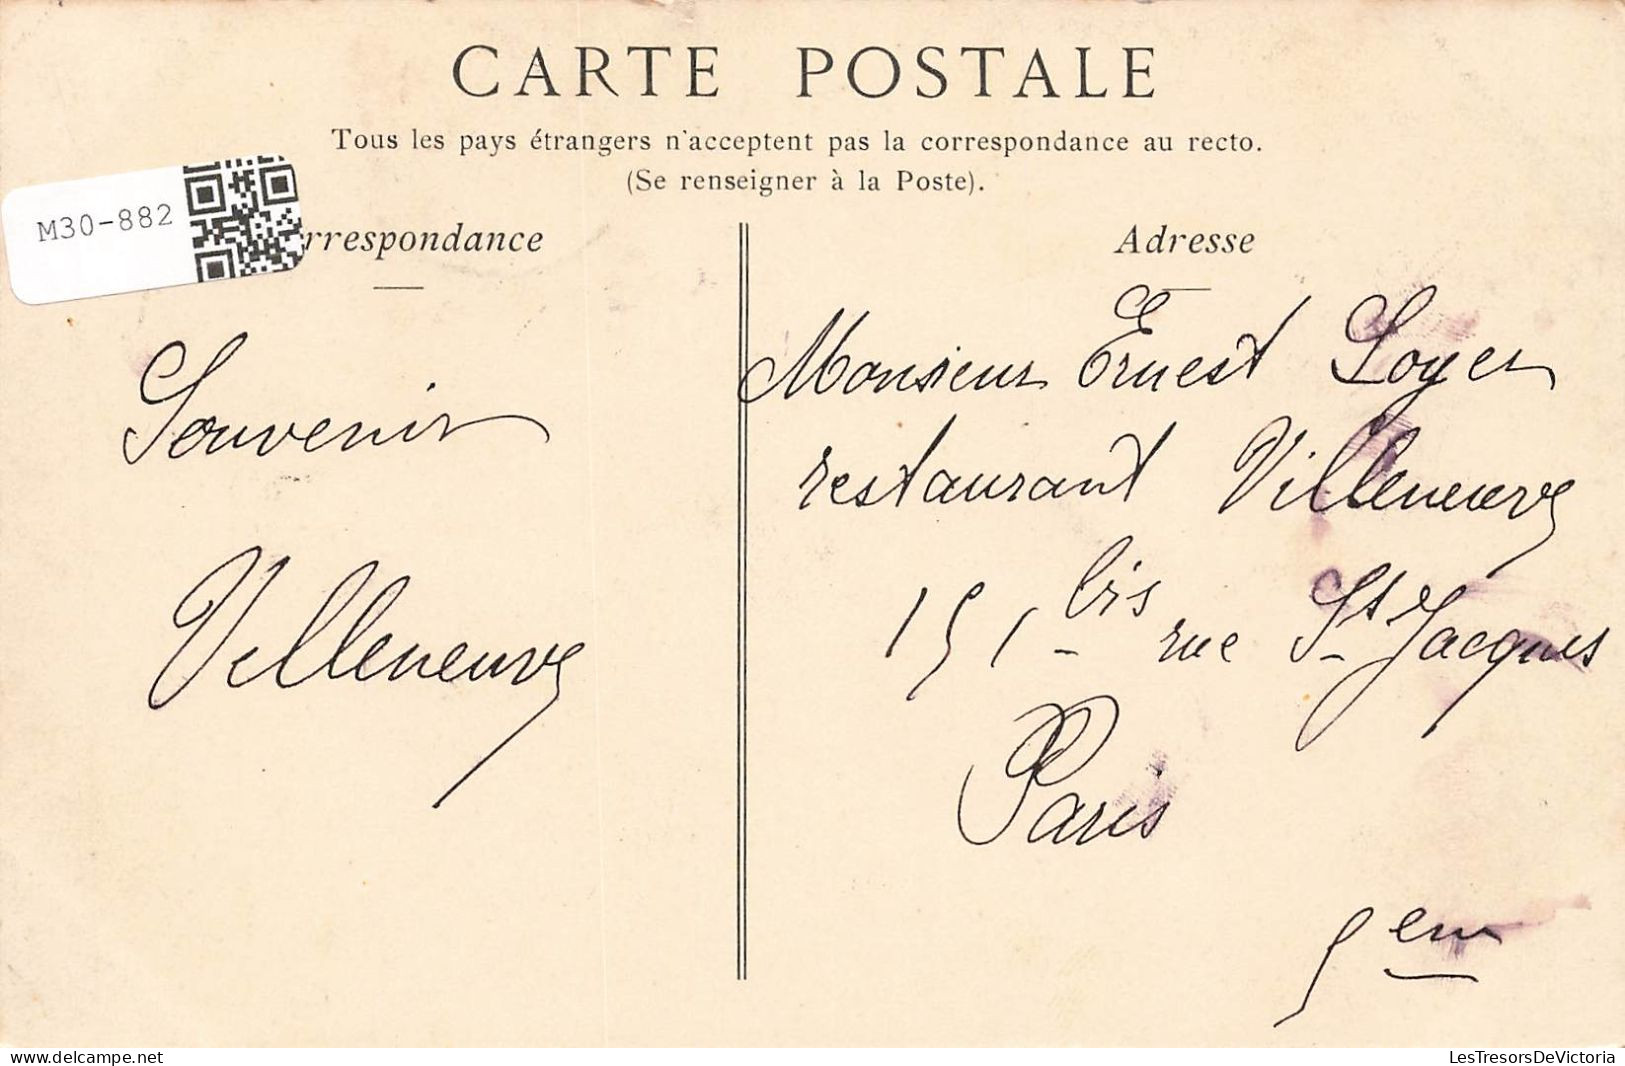 CARTE POSTALE
Tous les pays étrangers n'acceptent pas la correspondance au recto.
(Se renseigner à la Poste).
M30-882
rrespondance
Souvenir
Villeneuve
Adresse
Monsieur Ernest Loyer
restaurant Villeneuve
151 bis rue St Jacques
Paris
5em
delcampe.net
LesTresorsDeVictoria